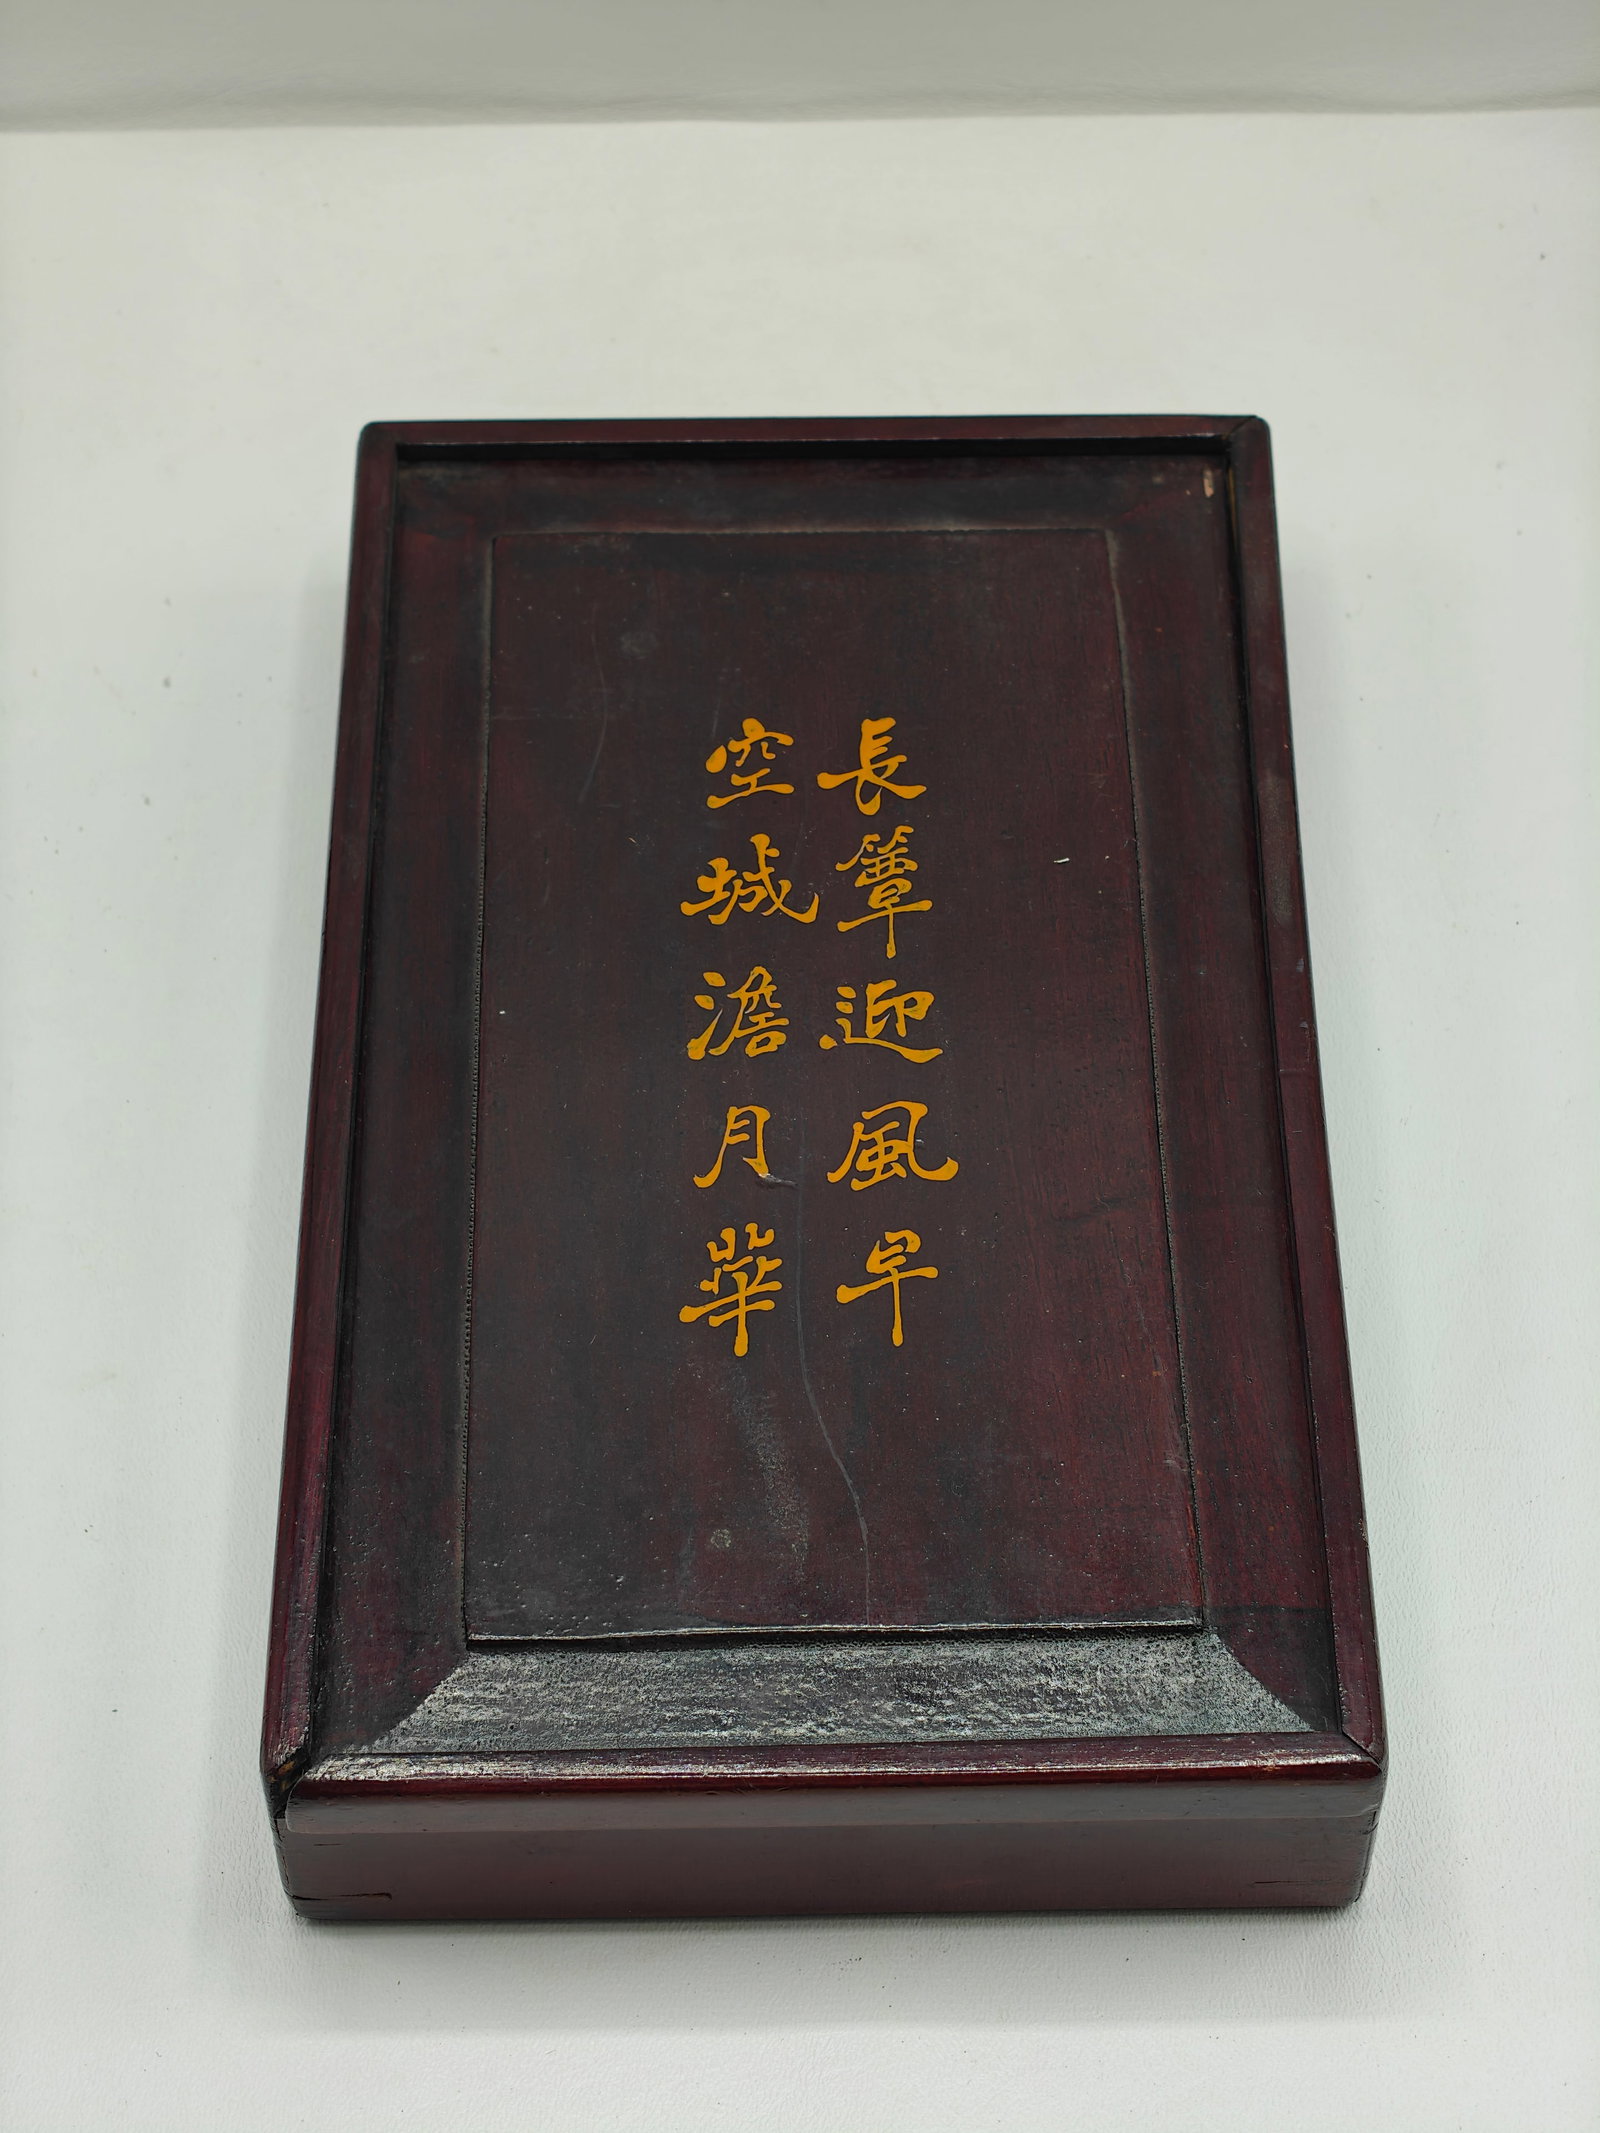 長簟迎風早
空城澹月華